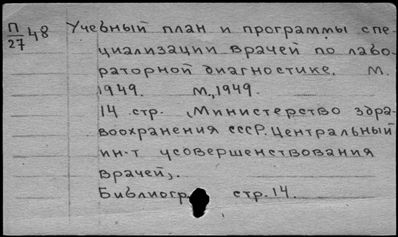 П/27 48 Учебный план и программы спе-
циализации врачей по лабо-
раторной диагностике. М.
1949. М., 1949.
14 стр. (Министерство здра-
воохранения СССР. Центральный
ин-т усовершенствования
врачей).
Библиогр. стр. 14.